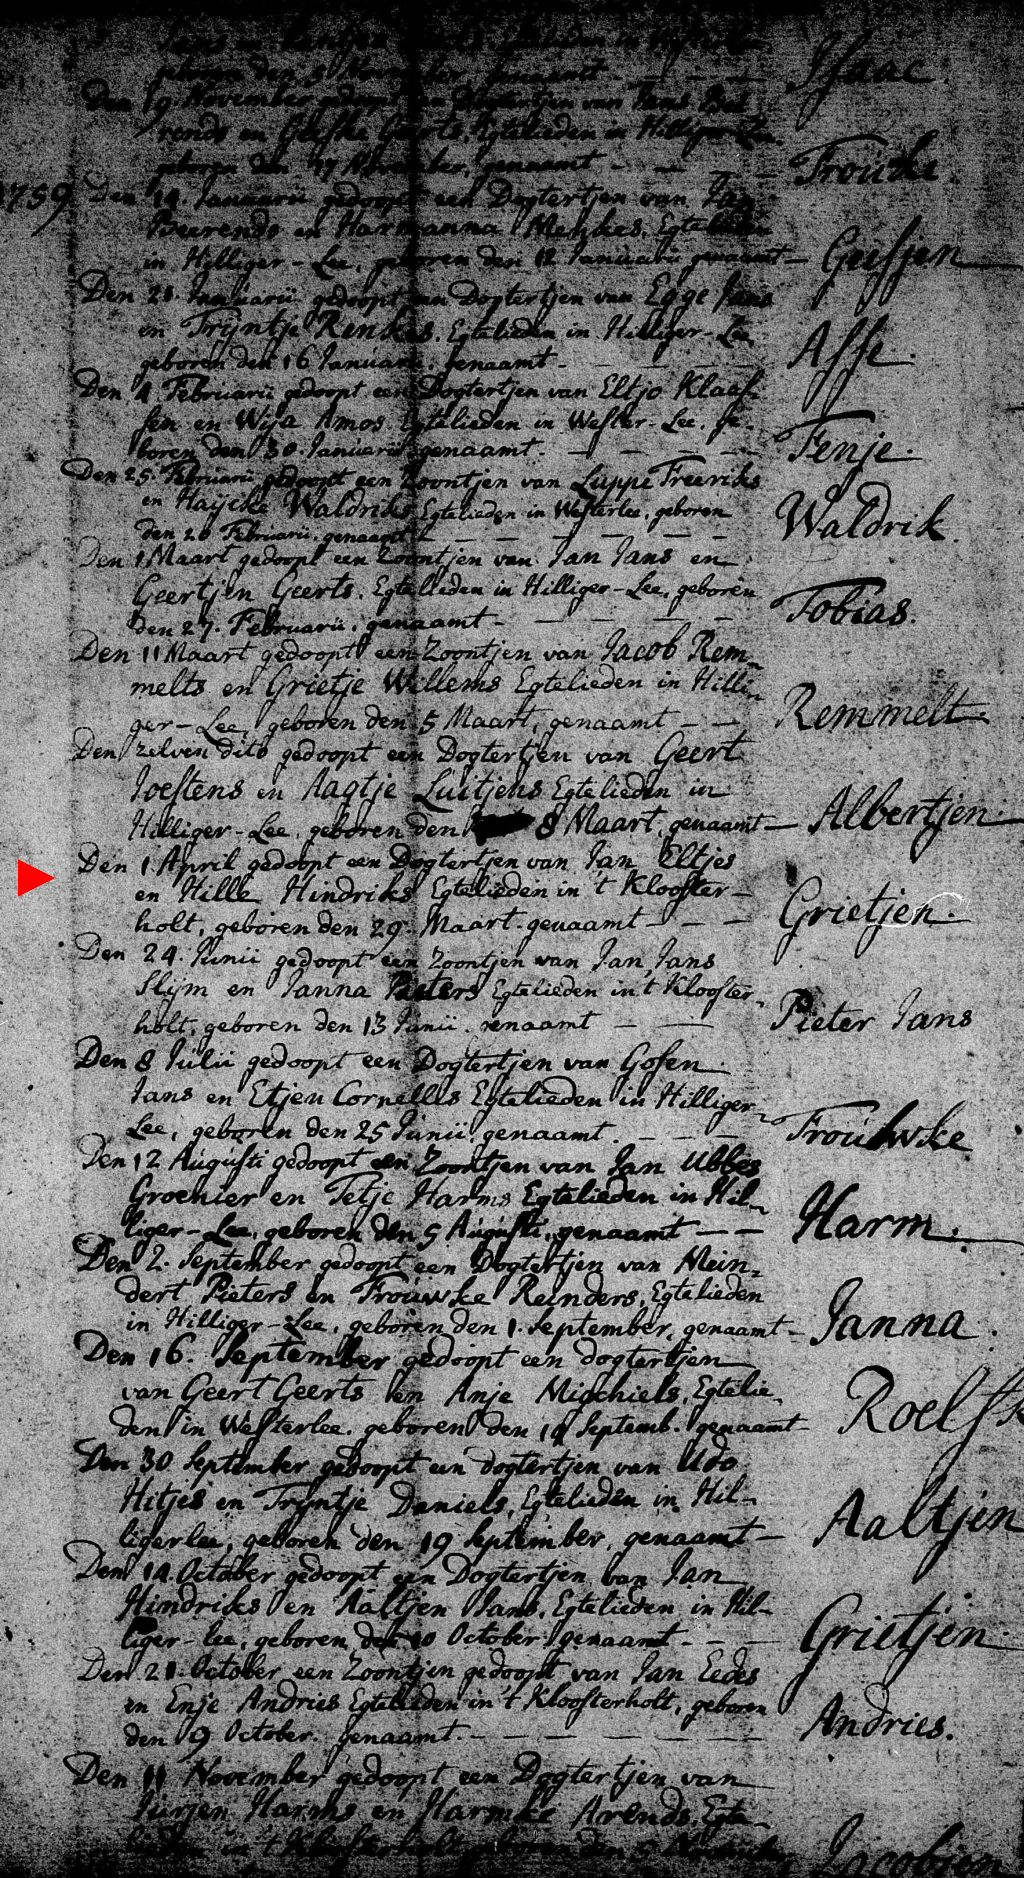 geboren den 5 November, genaamt - Isaac.
Den 19. November gedoopt een Dogtertjen van Jans Be-
rends en Geeske Geerts, Egtelieden in Hilligerlee
geboren den 17 November, genaamt - Trouwke.
1759 Den 14. Januarii gedoopt een Dogtertjen van Jan
Beerends en Harmanna Menkes, Egtelieden
in Hilliger-Lee, geboren den 12 Januarii genaamt - Geesjen
Den 21. Januarii gedoopt een Dogtertjen van Egge Jans
en Trijntje Renkes, Egtelieden in Hilliger-Lee
geboren den 16 Januarii. genaamt - Asse.
Den 4 Februarii gedoopt een Dogtertjen van Eltjo Klaas-
sen en Wija Amos Egtelieden in Wester-Lee. ge-
boren den 30. Januarii genaamt. - Fenje.
Den 25. Februarii gedoopt een Zoontjen van Luppe Freeriks
en Haijcke Waldriks Egtelieden in Westerlee, geboren
den 20 Februarii. genaamt - Waldrik.
Den 1 Maart gedoopt een Zoontjen van Jan Jans en
Geertjen Geerts, Egtelieden in Hilliger-Lee, geboren
den 27. Februarii, genaamt - Tobias.
Den 11 Maart gedoopt een Zoontjen van Jacob Rem-
melts en Grietje Willems Egtelieden in Hilli-
ger-Lee, geboren den 5 Maart, genaamt - Remmelt.
Den zelven dito gedoopt een Dogtertjen van Geert
Joestens en Aagtje Luitjens Egtelieden in
Hilliger-Lee, geboren den 8 Maart, genaamt - Albertjen.
Den 1. April gedoopt een Dogtertjen van Jan Eltjes
en Hille Hindriks Egtelieden in 't Klooster-
holt, geboren den 29. Maart. genaamt - Grietjen.
Den 24. Junii gedoopt een Zoontjen van Jan Jans
Slijm en Janna Pieters Egtelieden in 't Klooster-
holt, geboren den 13 Junii. genaamt - Pieter Jans
Den 8 Julii gedoopt een Dogtertjen van Gosen
Jans en Etjen Cornellis Egtelieden in Hilliger-
Lee, geboren den 25 Junii, genaamt. - Trouwke
Den 12 Augusti gedoopt een Zoontjen van Jan Ubbes
Groenier en Tetje Harms Egtelieden in Hil-
liger-Lee, geboren den 5 Augusti, genaamt - Harm.
Den 2. September gedoopt een Dogtertjen van Mein-
dert Pieters en Trouwke Reinders, Egtelieden
in Hilliger-Lee, geboren den 1. September, genaamt - Janna.
Den 16. September gedoopt een dogtertjen
van Geert Geerts en Anje Michiels, Egtelie-
den in Westerlee. geboren den 14 Septemb. genaamt - Roelfk
Den 30 September gedoopt een dogtertjen van Udo
Hitjes en Trijntje Daniels, Egtelieden in Hil-
ligerlee, geboren den 19 September, genaamt - Aaltjen
Den 14. October gedoopt een Dogtertjen van Jan
Hindriks en Aaltjen Jans, Egtelieden in Hil-
liger-lee, geboren den 10 October, genaamt - Grietjen.
Den 21. October een Zoontjen gedoopt van Jan Eedes
en Enje Andries Egtelieden in 't Kloosterholt, geboren
den 9 October. genaamt. - Andries.
Den 11 November gedoopt een Dogtertjen van
Jurjen Harms en Harmke Arends, Egte-
lieden in 't Kloosterholt, geboren den 5 November Jacobjen